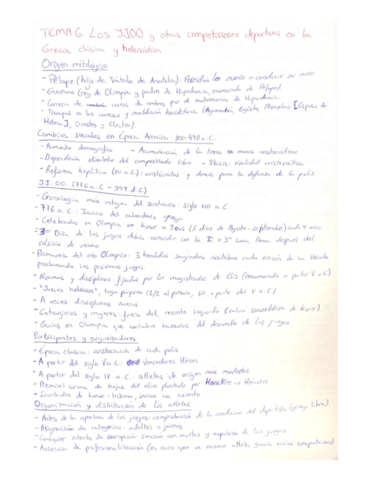 TEMA 6. Los JJOO y otras competiciones deportivas en la
Grecia clásica y helenística
Origen mitológico
- Pélope (hijo de Tántalo de Anatolia): Poseidón le enseña a conducir su carro
- Enómao (rey de Olimpia y padre de Hipodamía,
- Carrera de carros por el matrimonio de Hipodamía.
- Trampa en las carreras y maldición hereditaria (Agamenón, Egisto, Menelao [Esposo de
Helena], Orestes y Electra).
Cambios sociales en Época Arcaica 800-490 a.C.
- Aumento demográfico - Acumulación de la tierra en manos aristocráticas
- Dependencia clientelar del campesinado libre - Stasis: rivalidad aristocrática
- Reforma hoplítica (VII a.C): aristócratas y demos para la defensa de la polis
JJ.OO. (776 a.C - 394 d.C)
- Cronología más antigua del santuario: siglo XIII a.C.
- 776 a.C: Inicio del calendario griego
- Celebradas en Olimpia en honor a Zeus (5 días de Agosto - septiembre) cada 4 años
- 3er Día de los juegos debía coincidir con la luna llena después del
solsticio de verano
- Panorama del año Olímpico: 3 heraldos sagrados visitaban cada rincón de la Hélade
proclamando los próximos juegos.
- Normas y disciplinas fijadas por los magistrados de Elis
- "Jueces helenos", toga púrpura
- A veces disciplinas nuevas
- Extranjeros y mujeres fuera del recinto sagrado
- Guías en Olimpia que contaban historias del desarrollo de los juegos
Participantes y organizadores
- Época clásica: aristocracia de cada polis
- A partir del siglo V a.C: Vencedores Héroes
- A partir del siglo IV a.C: atletas de origen más modesto
- Premios: corona de hojas del olivo plantado por Herakles = Hércules
- Invitados de honor: tribuna, incluso un asiento
Organización y distribución de los atletas
- Antes de la apertura de los juegos: comprobación de la condición del deportista (griego libre)
- Asignación de categorías: adultos o jóvenes
- Cualquier intento de corrupción: sanción con multas y expulsión de los juegos
- Ausencia de profesionalización (es raro que un mismo atleta gane varias competiciones)